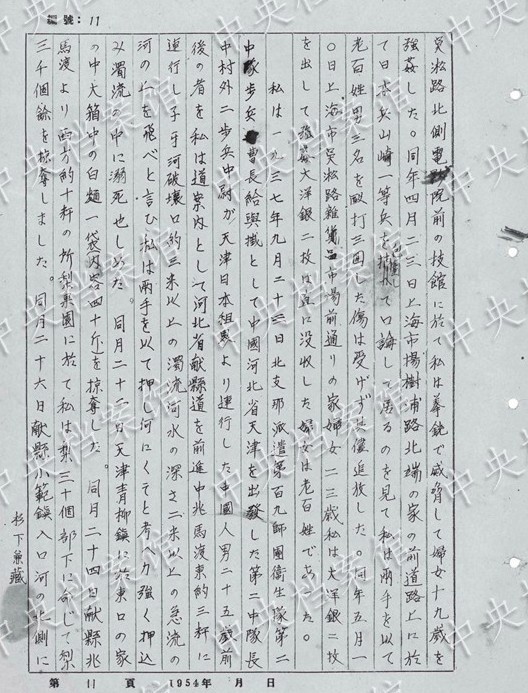 編號：11
吳淞路北側電影院前の技館に於て私は拳銃で威脅して婦女十九歳を
強姦した。同年四月二三日上海市場樹浦路北端の家の前道路上に於
て日本兵山崎一等兵を口論して居るのを見て私は両手を以て
老百姓男三名を殴打三回した傷は受けず其儘追放した。同年五月一
〇日上海市吳淞路雑貨品市場前通りの家婦女二三歳私は大洋銀二枚
を出して強姦大洋銀二枚は直に没収した婦女は老百姓であった。
私は一九三七年九月二十三日北支那派遣第百九師團衛生隊第二
中隊歩兵曹長給與掛として中國河北省天津を出發した第二中隊長
中村外二歩兵中尉が天津日本租界より連行した中國人男二十五歳前
後の者を私は道案内として河北省献縣道を前進中兆馬渡東約三粁に
連行し子牙河破壊口約三米以上の濁流河水の深さ二米以上の急流の
河の上を飛べと言ひ私は両手を以て押し何にくそと考へ力強く押込
み濁流の中に溺死せしめた。同月二十二日天津青柳鎮に於東口の家
の中大箱中の白麺一袋内容四十斤を掠奪した。同月二十四日献縣兆
馬渡より西方約十粁の所梨果園に於て私は梨三十個部下に命じて梨
三千個餘を掠奪しました。同月二十六日献縣小範鎮入口河の北側に
杉下兼藏
第 11 頁 1954年 月 日
中央档案馆